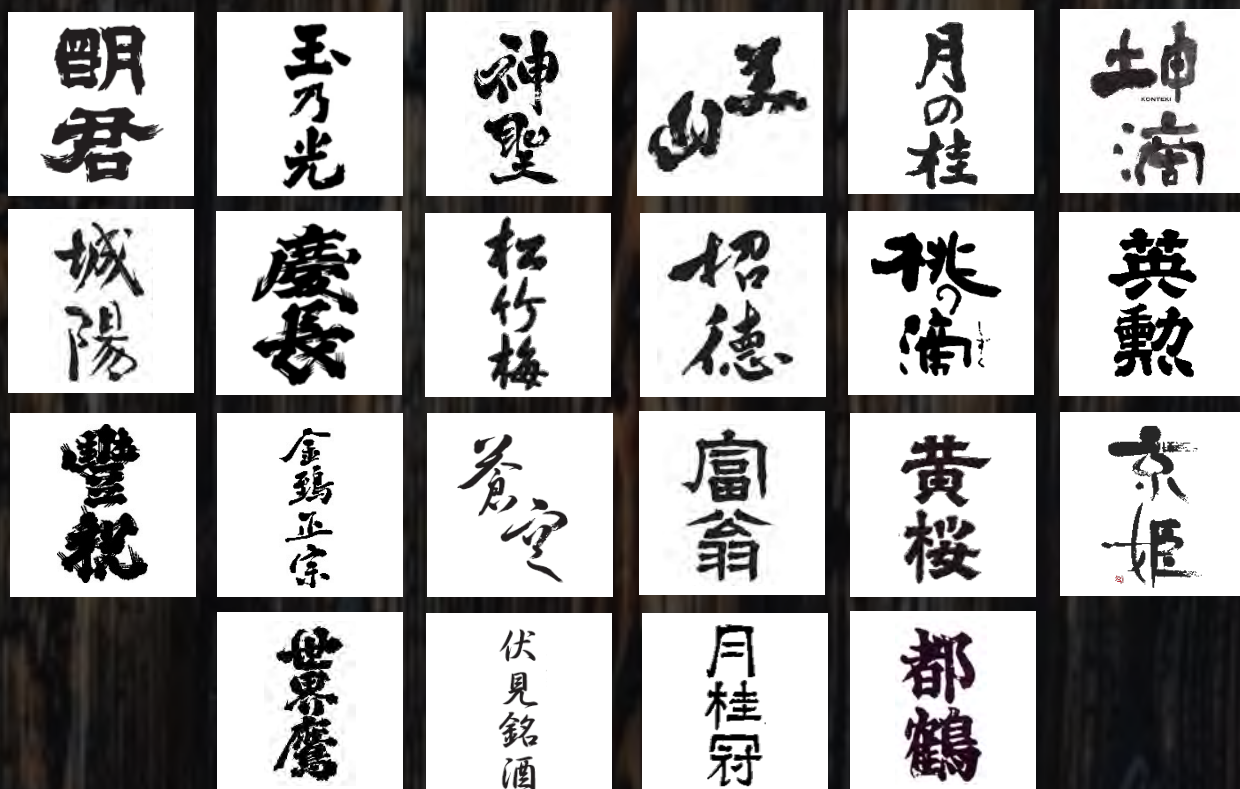 明君
玉乃光
神聖
美山
月の桂
坤滴
KONTEKI
城陽
慶長
松竹梅
招德
桃の滴
しずく
英勲
豐祝
金鵄正宗
蒼空
富翁
黄桜
京姫
世界鷹
伏見銘酒
月桂冠
都鶴